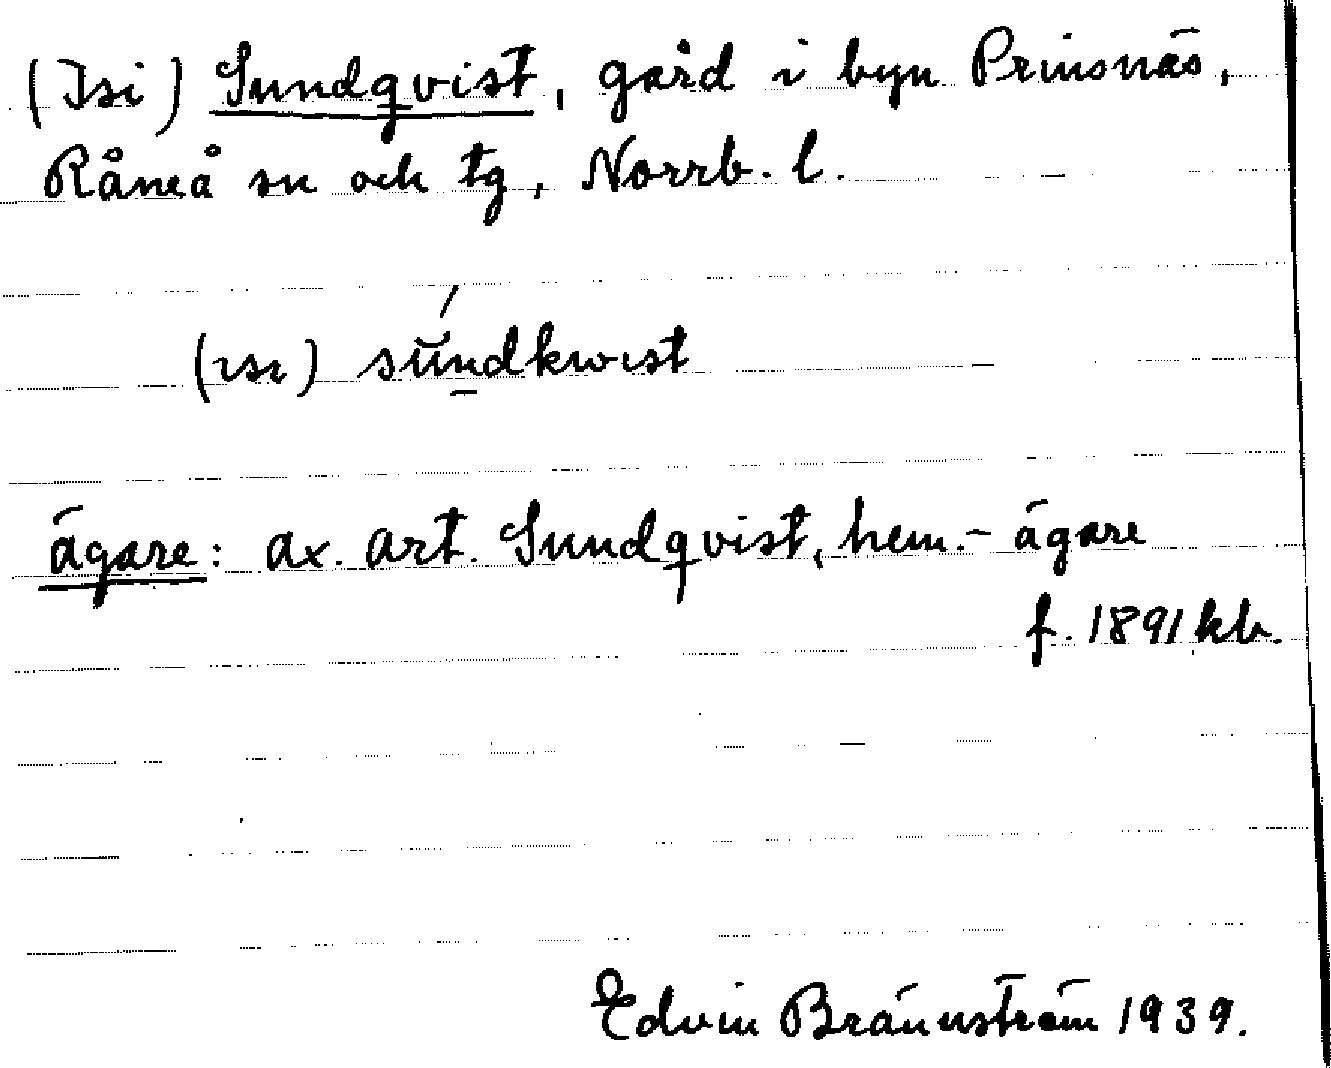 (Isi) Sundqvist, gård i byn Prinsnäs,
Råneå sn och tg, Norrb. l.
(ısı) súndkwıst
ägare: Ax. Art. Sundqvist, hem.-ägare
f. 1891 kb.
Edvin Brännström 1939.